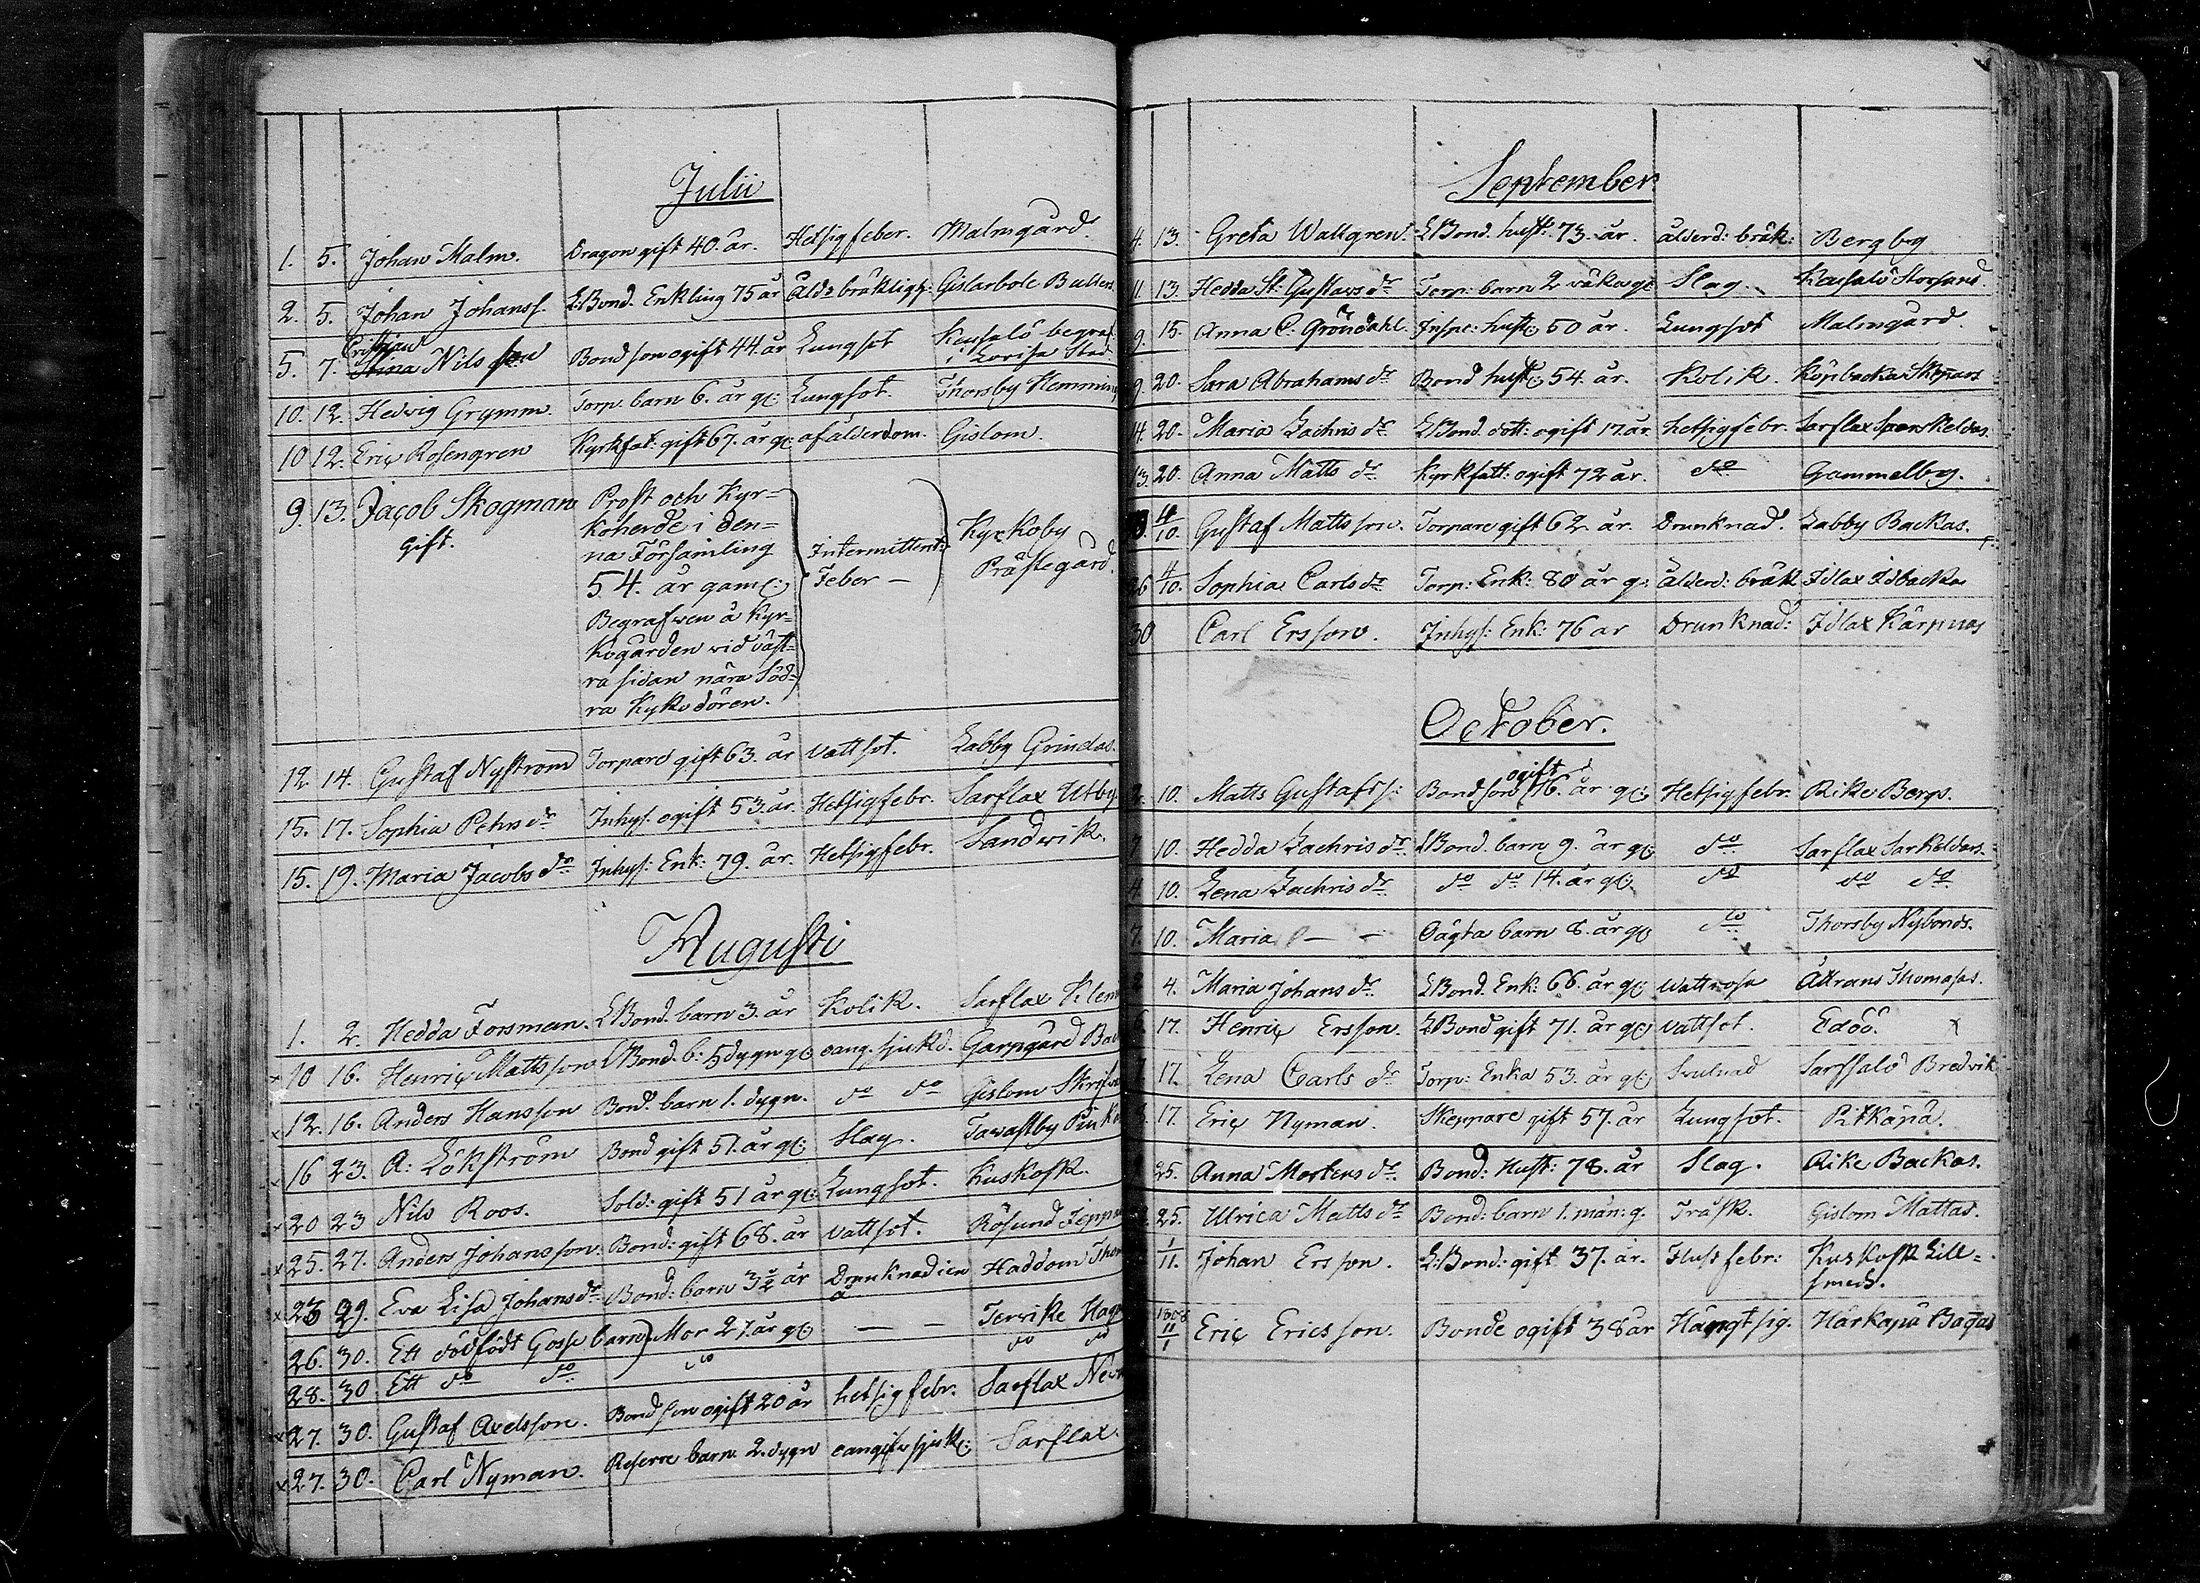 Julii
1. 5. Johan Malm. Dragon gift 40. år. Hetsigfeber. Malmgård.
2. 5. Johan Johanss. L:Bond. Enkling 75 år Åld: bräkligh: Gislarbole
Cristian
5. 7. Stina Nils son Bond son ogift 44. år Lungsot Keusalö begraf.
i Lovisa Stad
10. 12. Hedvig Grymm. Torp. barn 6. år gl: Lungsot. Thorsby
10 12. Eric Rosengren Kyrkfat: gift 67. år gl: af ålderdom. Gislom.
9. 13. Jacob Skogman Prost och Kyr-
Gift. koherde i den-
na Församling
54. år gaml: Intermittent: Feber — Kyrkoby Prästegård.
Begrafwen å Kyr-
kogården vid väst-
ra sidan nära Söd-
ra Kyko dören.
12. 14. Gustaf Nyström Torpare gift 63. år Vattsot. Labby Grindas.
15. 17. Sophia Pehrs dr Inhys. ogift 53. år. Hetsigfebr. Sarflax Utby
15. 19. Maria Jacobs dr Inhys: Enk: 79. år. Hetsigfebr. Sandwik.
Augusti
1. 2. Hedda Forsman. LBond. barn 3. år Kolik. Sarflax
x 10 16. Henric Mattsson LBond. b: 5 dygn gl oang. sjukd. Garpgård
x 12. 16. Anders Hansson Bond. barn 1. dygn. do do Gislom
x 16 23. A: Lökström Bond gift 51. år gl: Slag. Tavastby
x 20 23 Nils Roos. Sold: gift 51 år gl: Lungsot. Kuskosk.
x 25. 27. Anders Johansson. Bond: gift 68. år Vattsot. Rösund
x 23 29. Eva Lisa Johans dr Bond: barn 3 år Drunknad i en Haddom
26. 30. Ett dödfödt Gosse barn Mor 27. år gl: — — Tervike
28. 30 Ett do do do do do
x 27. 30. Gustaf Axelsson. Bond son ogift 20 år hetsigfebr. Sarflax
x 27. 30. Carl Nyman. Reserve barn. 2. dygn oangifv sjukl: Sarflax.
September
4. 13. Greta Wallgren. LBond. hust: 73. år. ålderd: bräk: Bergby
11. 13. Hedda St: Gustavs dr Torp: barn 2 väkor gl Slag. Keusalö Storsand
9. 15. Anna C. Gröndahl. Inspe: hust: 50 år. Lungsot Malmgård.
9. 20. Sara Abrahams dr Bond hust: 54. år. Kolik. Köpbacka Skepars
14. 20. Maria Zachris dr LBond. dott: ogift 17. år. hetsigfebr. Sarflax
13. 20. Anna Matts dr Kyrkfatt: ogift 72 år. do Gammelby.
4/10. Gustaf Mattsson. Torpare gift 62. år. Drunknad. Labby Backas.
26 4/10. Sophia Carls dr Torp: Enk: 80 år g: ålderd: bräk Idlax Idbacka
30 Carl Ersson. Inhys: Enk: 76 år Drunknad: Idlax Kärpnäs
October.
ogift
2. 10. Matts Gustafss: Bond son 16. år gl: Hetsigfebr. Rike Bergs.
7 10. Hedda Zachris dr. LBond. barn 9. år gl: do Sarflax Sarkeldars.
4 10. Lena Zachris dr do do 14. år gl: do do do
7. 10. Maria — — Oägta barn 8. år gl: do Thorsby Nybonds.
4. Maria Johans dr LBond. Enk: 66. år gl: Attrans Thomasas.
17. Henric Ersson. LBond gift 71. år gl: Vattsot. Edöö. x
17. Lena Carls dr Torp: Enka 53. år gl: Svulnad Sarfsalö Bredvik
17. Eric Nyman. Skeppare gift 57. år Lungsot. Pitkäpä.
25. Anna Mortens dr. Bond: Hust: 78. år Slag. Rike Backas.
25. Ulrica Matts dr Bond: barn 1. mån: g. Tråsk. Gislom Mattas.
1/11. Johan Ersson. L:Bond: gift 37. år. Flussfebr: Kuskosk Lill-
smeds.
1808 11/1 Eric Ericsson. Bonde ogift 38 år Hängt sig. Härkäpä